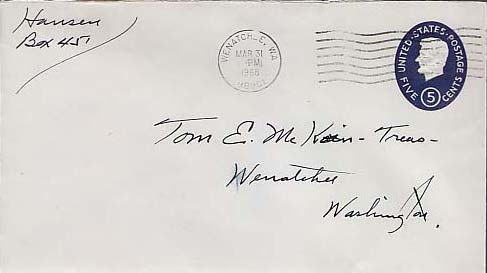 Hansen
Box 451
WENATCHEE, WA
MAR 31
PM
1966
UNITED STATES POSTAGE
5
FIVE CENTS
Tom E. McKoin - Treas -
Wenatchee
Washington.